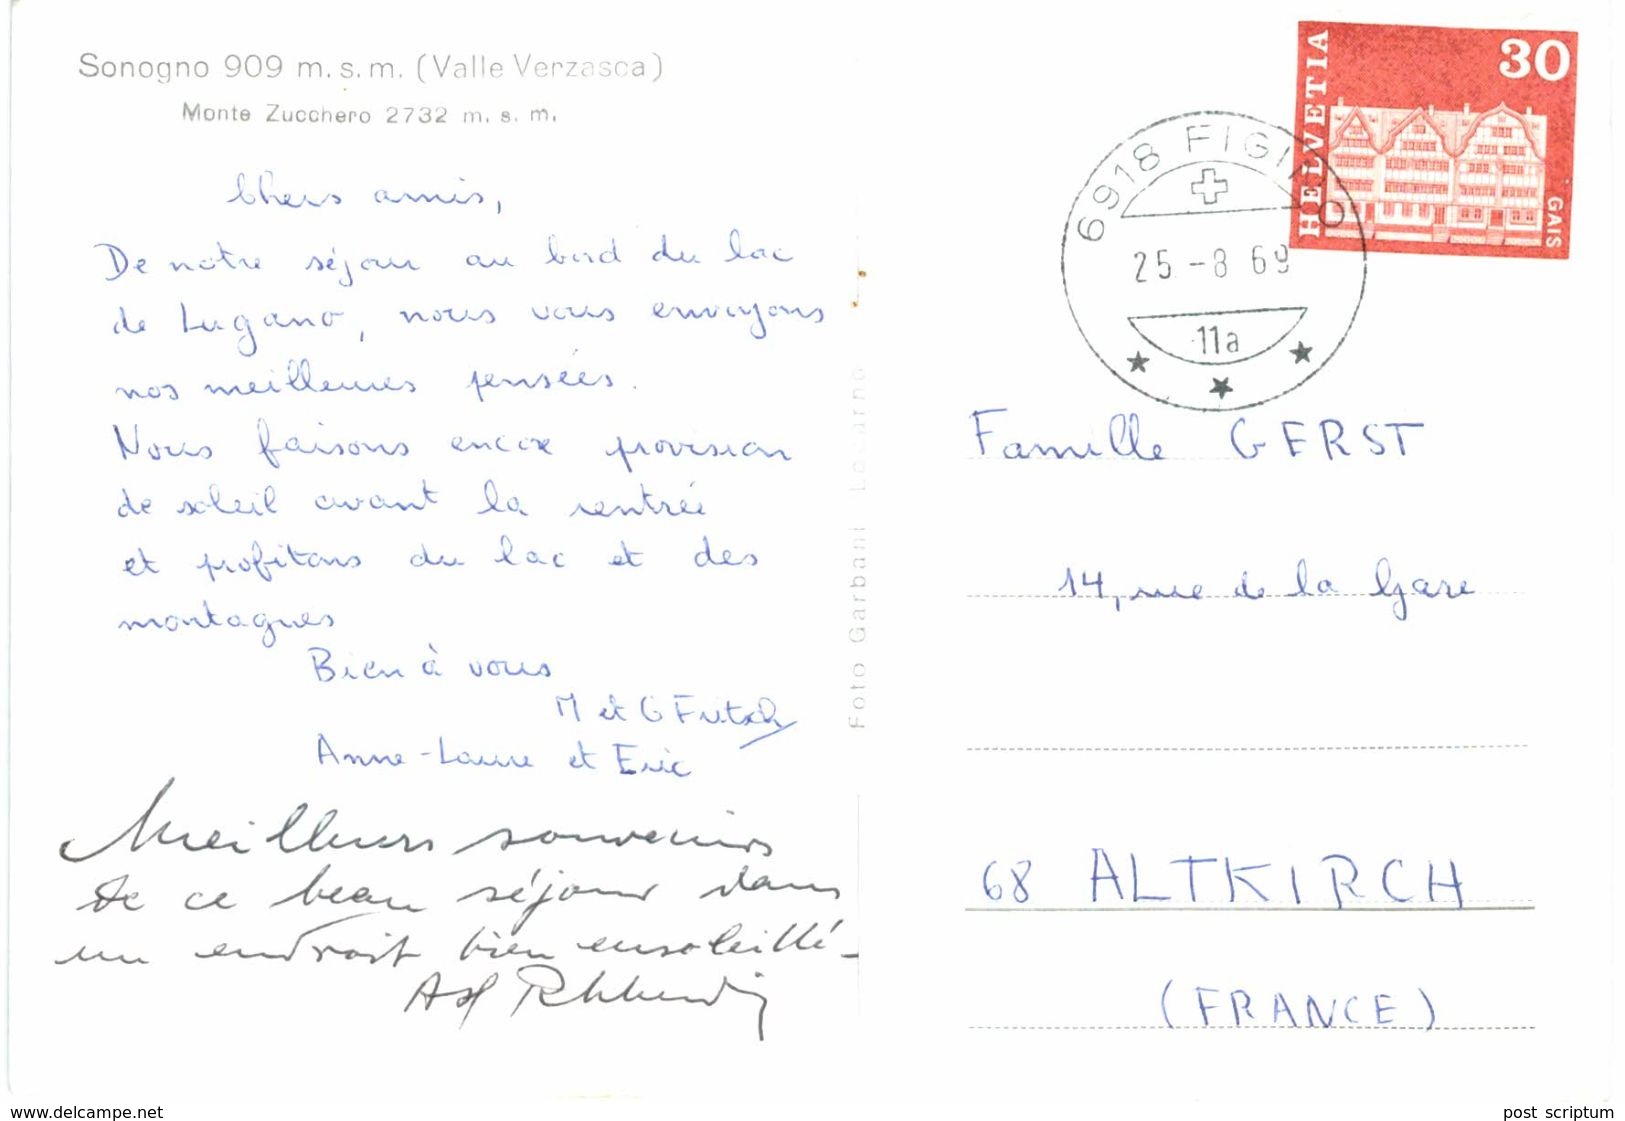 Sonogno 909 m.s.m. (Valle Verzasca)
Monte Zucchero 2732 m.s.m.
Chers amis,
De notre séjour au bord du lac
de Lugano, nous vous envoyons
nos meilleures pensées.
Nous faisons encore provision
de soleil avant la rentrée
et profitons du lac et des
montagnes
Bien à vous
M et G Fritsch
Anne-Laure et Eric
Meilleurs souvenirs
de ce beau séjour dans
un endroit bien ensoleillé-
Foto Garbani Locarno
HELVETIA
30
GAIS
6918 FIGINO
25-8 69
11a
Famille GERST
14, rue de la Gare
68 ALTKIRCH
(FRANCE)
www.delcampe.net
post scriptum